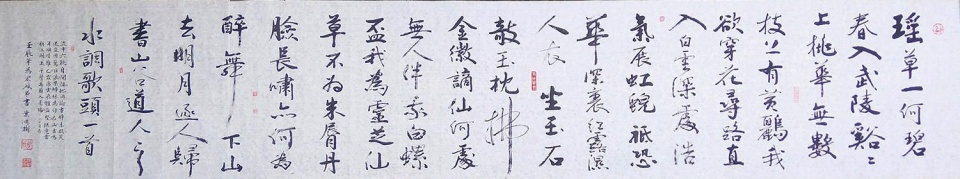 瑶草一何碧
春入武陵谿〻
上桃華無數
枝上有黄鸝我
欲穿花尋路直
入白雲深處浩
氣展虹蜺祗恐
華深裏紅露濕
人衣 坐玉石
敧玉枕拂
金徽謫仙何處
無人伴我白螺
盃我為靈芝仙
草不為朱脣丹
臉長嘯亦何為
醉舞 下山
去明月逐人歸
書山谷道人之
水調歌頭一首